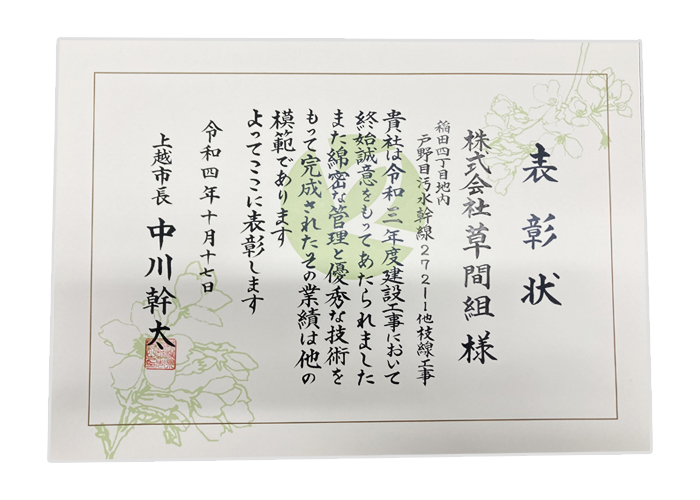 表彰状
株式会社草間組様
稲田四丁目地内
戸野目汚水幹線272ー1他枝線工事
貴社は令和三年度建設工事において
終始誠意をもってあたられました
また綿密な管理と優秀な技術を
もって完成されたその業績は他の
模範であります
よってここに表彰します
令和四年十月十七日
上越市長 中川幹太